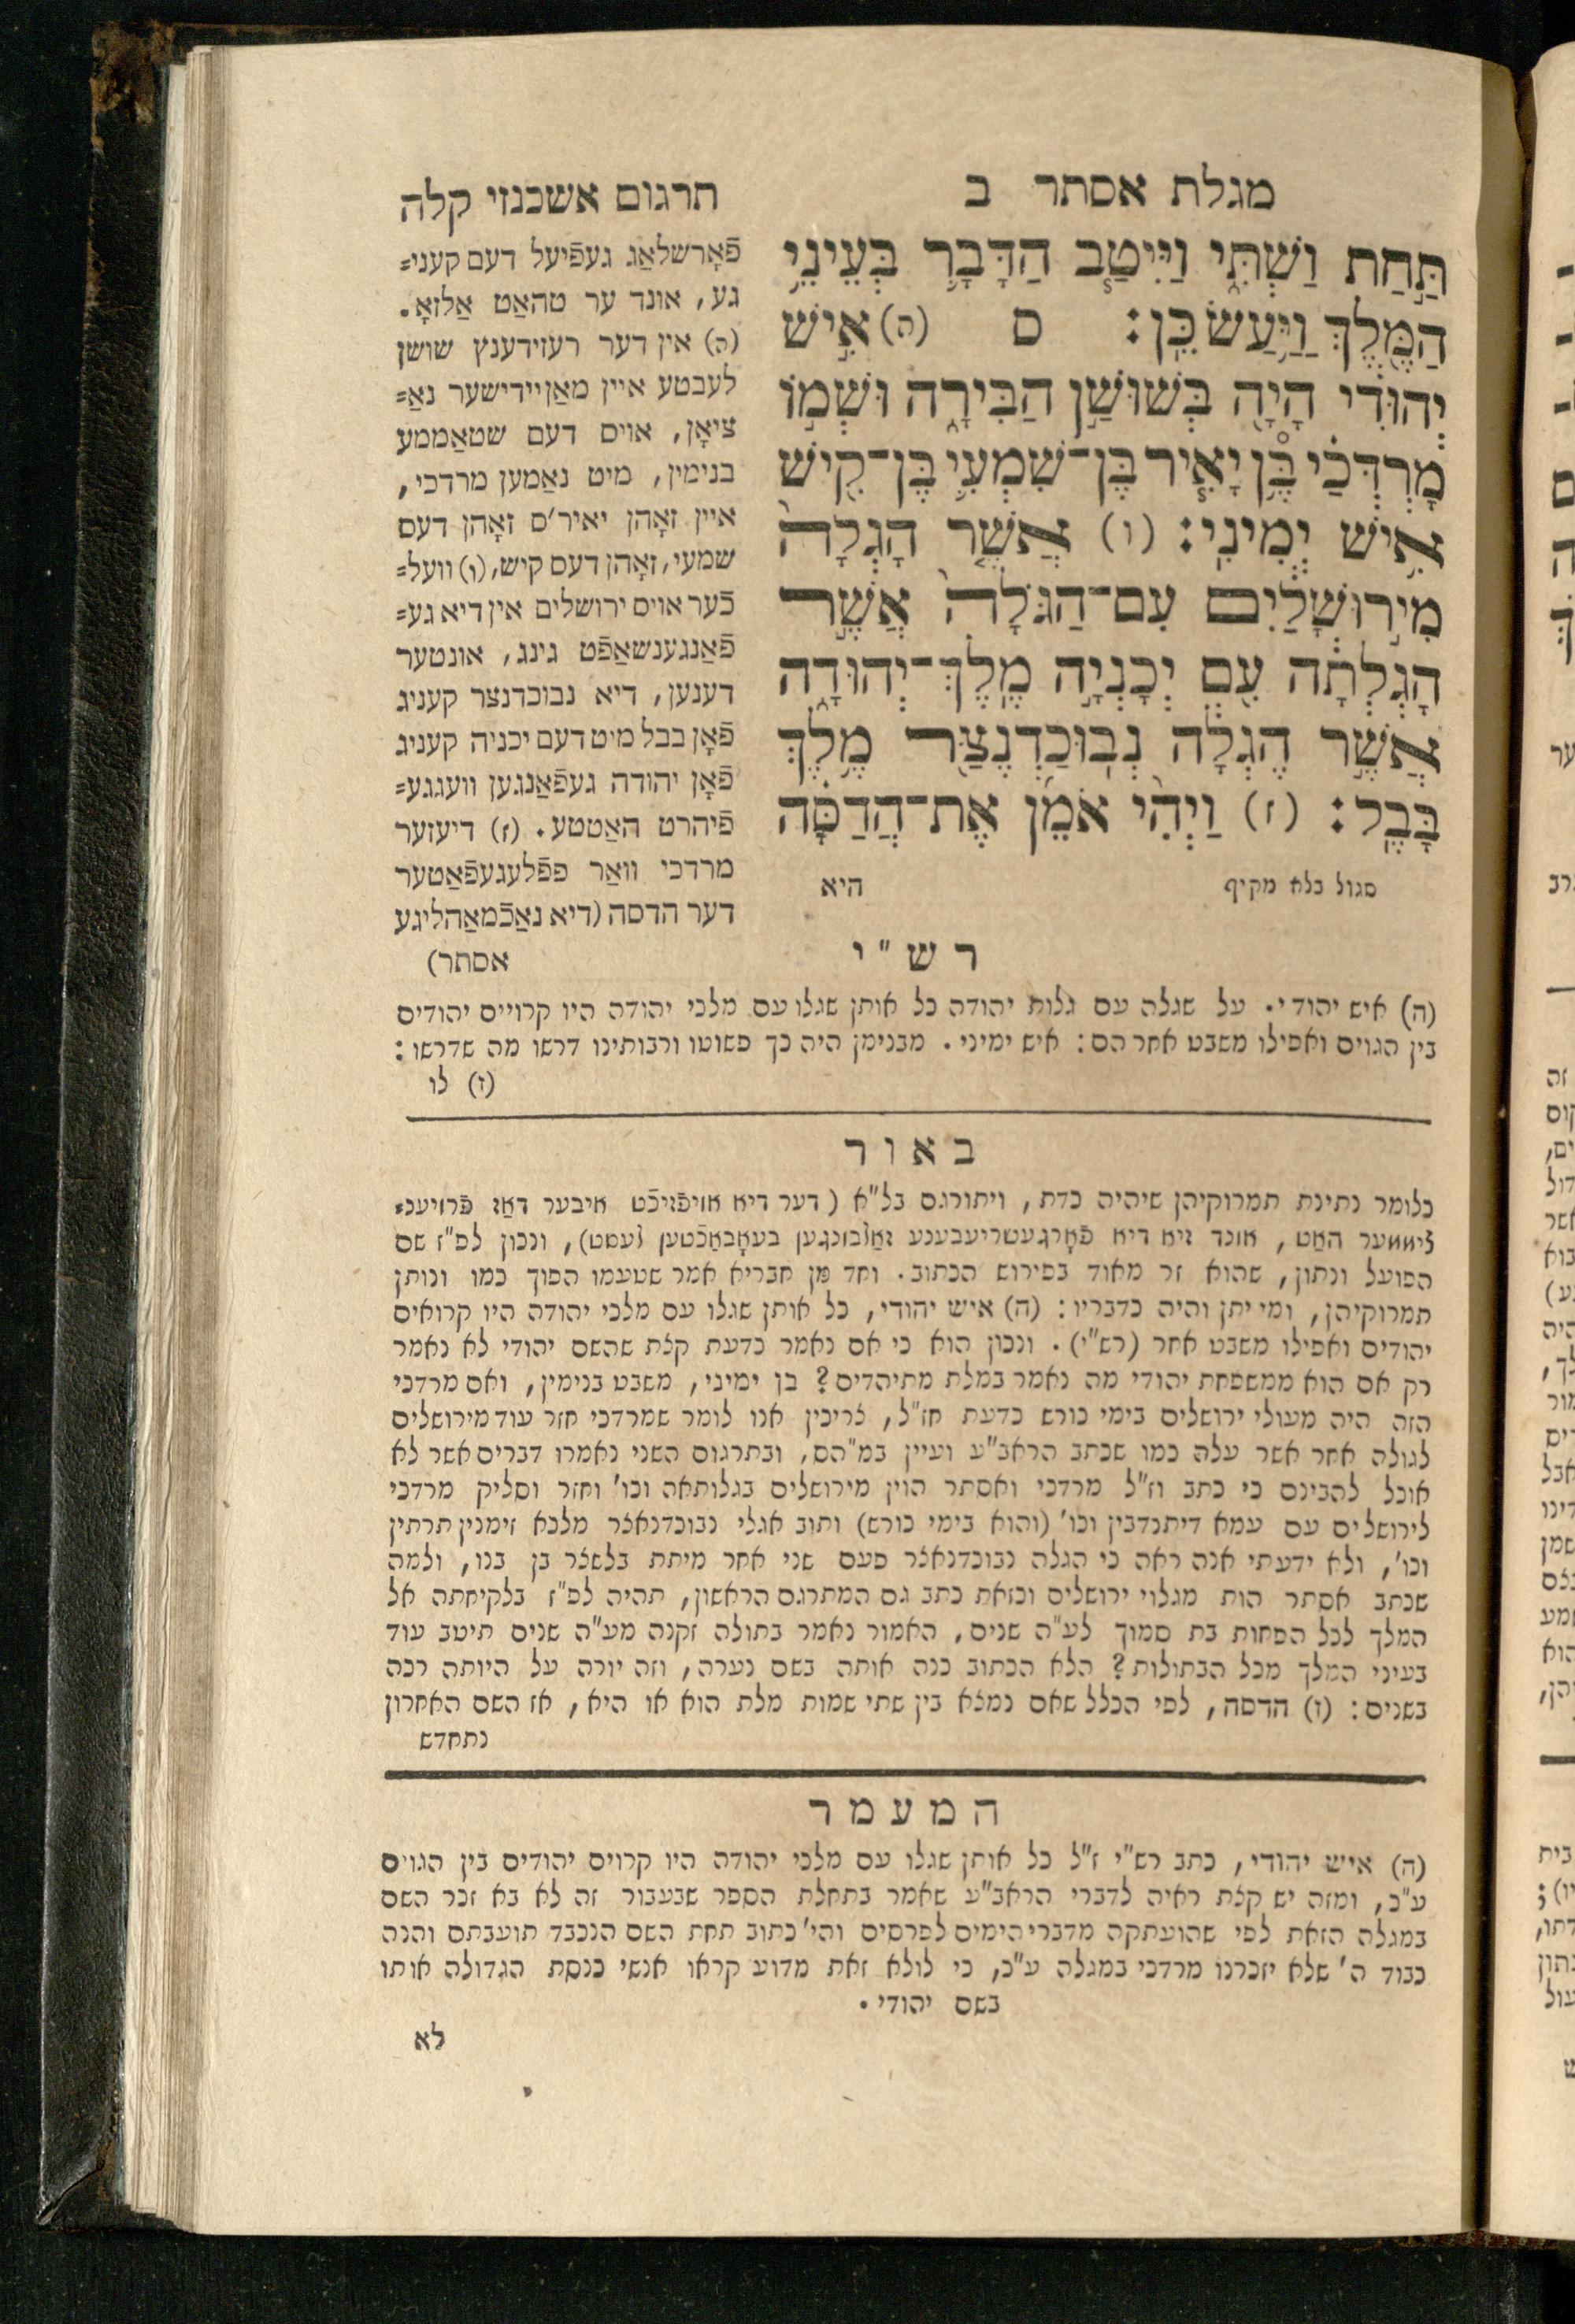 מגלת אסתר ב
תַּ֣חַת וַשְׁתִּ֑י וַיִּיטַ֧ב הַדָּבָ֛ר בְּעֵינֵ֥י
הַמֶּ֖לֶךְ וַיַּ֥עַשׂ כֵּֽן: ס (ה) אִ֣ישׁ
יְהוּדִ֔י הָיָ֖ה בְּשׁוּשַׁ֣ן הַבִּירָ֑ה וּשְׁמ֣וֹ
מָרְדֳּכַ֗י בֶּ֣ן יָאִ֧יר בֶּן־שִׁמְעִ֛י בֶּן־קִ֖ישׁ
אִ֥ישׁ יְמִינִֽי: (ו) אֲשֶׁ֤ר הָגְלָה֙
מִיר֣וּשָׁלַ֔יִם עִם־הַגֹּלָה֙ אֲשֶׁ֣ר
הָגְלְתָ֔ה עִ֖ם יְכָנְיָ֣ה מֶֽלֶךְ־יְהוּדָ֑ה
אֲשֶׁ֣ר הֶגְלָ֔ה נְבֽוּכַדְנֶצַּ֖ר מֶ֥לֶךְ
בָּבֶֽל: (ז) וַיְהִ֨י אֹמֵ֜ן אֶת־הֲדַסָּ֗ה
סגול בלא מקיף היא
תרגום אשכנזי קלה
פֿאָרשלאַג געפֿיעל דעם קעני=
גע, אונד ער טהאַט אַלזאָ.
(ה) אין דער רעזידענץ שושן
לעבטע איין מאַן יידישער נאַ=
ציאָן, אויס דעם שטאַממע
בנימין, מיט נאַמען מרדכי,
איין זאָהן יאיר'ס זאָהן דעס
שמעי, זאָהן דעס קיש, (ו) וועל=
כֿער אויס ירושלים אין דיא גע=
פֿאַנגענשאַפֿט גינג, אונטער
דענען, דיא נבוכדנצר קעניג
פֿאָן בבל מיט דעם יכניה קעניג
פֿאָן יהודה געפֿאַנגען וועגגע=
פֿיהרט האַטטע. (ז) דיעזער
מרדכי וואַר פפֿלעגעפֿאַטער
דער הדסה (דיא נאַכֿמאַהליגע
אסתר)
רש"י
(ה) איש יהודי. על שגלה עם גלות יהודה כל אותן שגלו עם מלכי יהודה היו קרויים יהודים
בין הגוים ואפילו משבט אחר הם: איש ימיני. מבנימן היה כך פשוטו ורבותינו דרשו מה שדרשו:
(ז) לו
באור
כלומר נתינת תמרוקיהן שיהיה כדת, ויתורגם בל"א (דער דיא אויפֿזיכֿט איבער דאַז פֿרויענ=
צימער האַט, אונד זיא דיא פֿאָרגעשריעבענע זאַלבונגען בעאָבאַכֿטען לעסט), ונכון לפ"ז שם
הפועל ונתון, שהוא זר מאוד בפירוש הכתוב. וחד מן חבריא אמר שטעמו הפוך כמו ונותן
תמרוקיהן, ומי יתן והיה כדבריו: (ה) איש יהודי, כל אותן שגלו עם מלכי יהודה היו קרואים
יהודים ואפילו משבט אחר (רש"י). ונכון הוא כי אם נאמר כדעת קצת שהשם יהודי לא נאמר
רק אם הוא ממשפחת יהודי מה נאמר במלת מתיהדים? בן ימיני, משבט בנימין, ואם מרדכי
הזה היה מעולי ירושלים בימי כורש כדעת חז"ל, צריכין אנו לומר שמרדכי חזר עוד מירושלים
לגולה אחר אשר עלה כמו שכתב הראב"ע ועיין במ"הם, ובתרגום השני נאמרו דברים אשר לא
אוכל להבינם כי כתב וז"ל מרדכי ואסתר הוין מירושלים בגלותאה וכו' וחזר וסליק מרדכי
לירושלים עם עמא דיתנדבין וכו' (והוא בימי כורש) ותוב אגלי נבוכדנאצר מלכא זימנין תרתין
וכו', ולא ידעתי אנה ראה כי הגלה נבוכדנאצר פעם שני אחר מיתת בלשצר בן בנו, ולמה
שכתב אסתר הות מגלוי ירושלים וכזאת כתב גם המתרגם הראשון, תהיה לפ"ז בלקיחתה אל
המלך לכל הפחות בת סמוך לע"ה שנים, האמור נאמר בתולה זקנה מע"ה שנים תיטב עוד
בעיני המלך מכל הבתולות? הלא הכתוב כנה אותה בשם נערה, וזה יורה על היותה רכה
בשנים: (ז) הדסה, לפי הכלל שאם נמצא בין שתי שמות מלת הוא או היא, אז השם האחרון
נתחדש
המעמר
(ה) איש יהודי, כתב רש"י ז"ל כל אותן שגלו עם מלכי יהודה היו קרוים יהודים בין הגוים
ע"כ, ומזה יש קצת ראיה לדברי הראב"ע שאמר בתחלת הספר שבעבור זה לא בא זכר השם
במגלה הזאת לפי שהועתקה מדברי הימים לפרסים והי' כתוב תחת השם הנכבד תועבתם והנה
כבוד ה' שלא יזכרנו מרדכי במגלה ע"כ, כי לולא זאת מדוע קראו אנשי כנסת הגדולה אותו
בשם יהודי.
לא